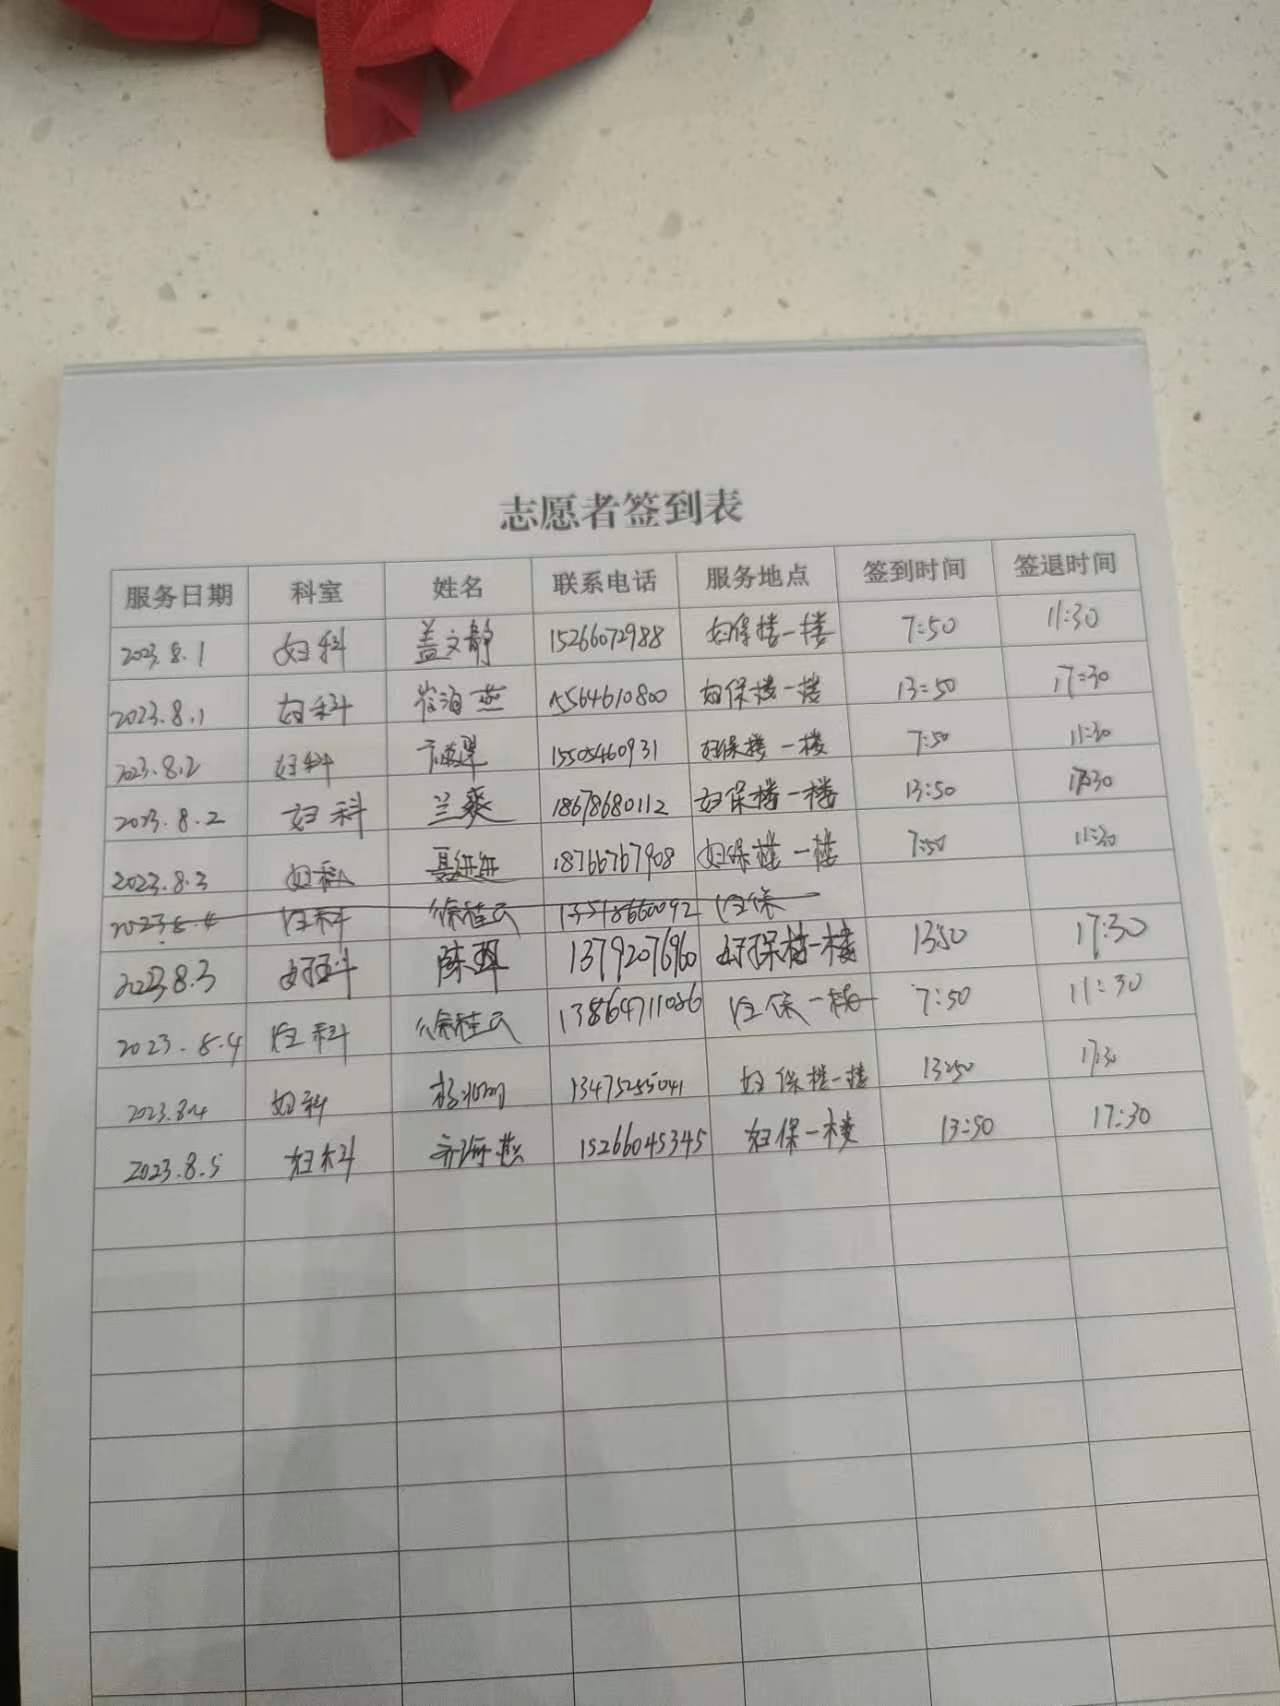 志愿者签到表
服务日期 科室 姓名 联系电话 服务地点 签到时间 签退时间
2023.8.1 妇科 盖文静 15266072988 妇保楼一楼 7:50 11:30
2023.8.1 妇科 15564610800 妇保楼一楼 13:50 17:30
2023.8.2 妇科 15505460931 妇保楼一楼 7:50 11:30
2023.8.2 妇科 兰爽 18678680112 妇保楼一楼 13:50 17:30
2023.8.3 妇科 聂进进 18766767908 妇保楼一楼 7:50 11:30
2023.8.4 妇科 徐桂云 妇保一
2023.8.3 妇科 陈翠 13792076960 妇保楼一楼 13:50 17:30
2023.8.4 妇科 徐桂云 13864711086 妇保一楼 7:50 11:30
2023.8.4 妇科 13475255041 妇保楼一楼 13:50 17:30
2023.8.5 妇科 齐海燕 15266045345 妇保一楼 13:50 17:30